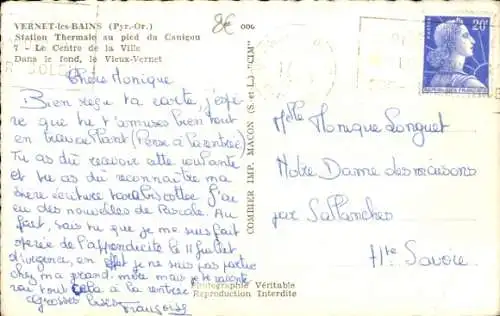 VERNET-les-BAINS (Pyr.-Or.)
Station Thermale au pied du Canigou
7 - Le Centre de la Ville
Dans le fond, le Vieux-Vernet
8€
000
SOLE
Chère Monique
Bien reçu ta carte, j'espè
re que tu t'amuses bien tout
en travaillant (Pense à la rentrée)
Tu as dû recevoir cette
et tu as dû reconnaître ma
écriture J'ai
eu des nouvelles de Pascale. Au
fait, sais tu que je me suis fait
opérée de l'appendicite le 11 Juillet
d'urgence, en effet je ne suis pas partie
chez ma grand-mère mais je te raconte
rai tout cela à la rentrée
Grosses bises
Françoise
COMBIER IMP. MACON (S.-et-L.) "CIM"
Photographie Véritable
Reproduction Interdite
POSTES
20F
REPUBLIQUE FRANÇAISE
Mlle Monique Longuet
Notre Dame des moissons
par Sallanches
Hte Savoie